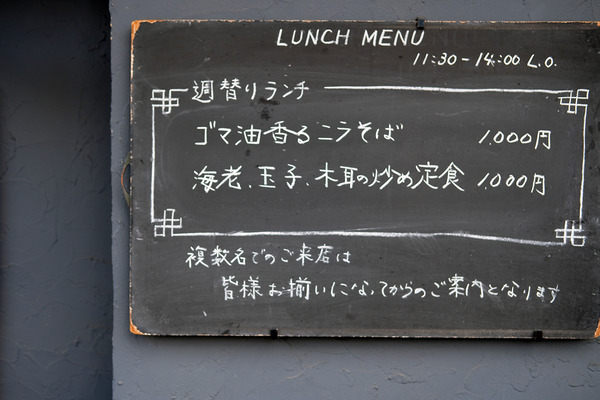 LUNCH MENU
11:30-14:00 L.O.
週替りランチ
ゴマ油香るニラそば 1,000円
海老、玉子、木耳の炒め定食 1,000円
複数名でのご来店は
皆様お揃いになってからのご案内となります